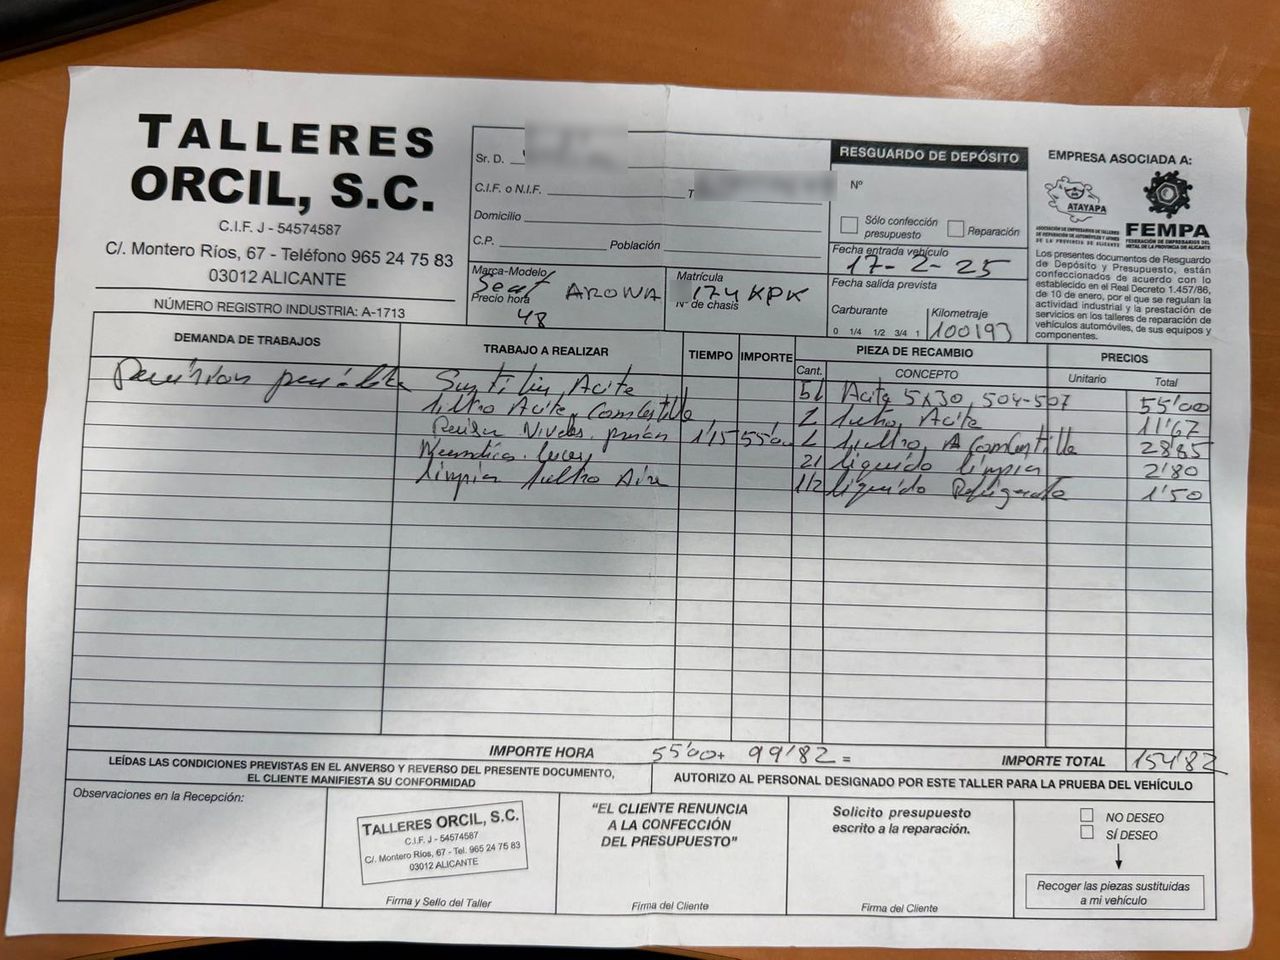 TALLERES
ORCIL, S.C.
C.I.F. J - 54574587
C/. Montero Ríos, 67 - Teléfono 965 24 75 83
03012 ALICANTE
NÚMERO REGISTRO INDUSTRIA: A-1713
Sr. D.
C.I.F. o N.I.F. T
Domicilio
C.P. Población
Marca-Modelo
Seat
Precio hora
48
Matrícula
174 KPK
Nº de chasis
RESGUARDO DE DEPÓSITO
Nº
Sólo confección
presupuesto
Reparación
Fecha entrada vehículo
17-2-25
Fecha salida prevista
Carburante
0 1/4 1/2 3/4 1
Kilometraje
100193
EMPRESA ASOCIADA A:
ATAYAPA
ASOCIACIÓN DE EMPRESARIOS DE TALLERES
DE REPARACIÓN DE AUTOMÓVILES Y AFINES
DE LA PROVINCIA DE ALICANTE
FEMPA
FEDERACIÓN DE EMPRESARIOS DEL
METAL DE LA PROVINCIA DE ALICANTE
Los presentes documentos de Resguardo
de Depósito y Presupuesto, están
confeccionados de acuerdo con lo
establecido en el Real Decreto 1.457/86,
de 10 de enero, por el que se regulan la
actividad industrial y la prestación de
servicios en los talleres de reparación de
vehículos automóviles, de sus equipos y
componentes.
DEMANDA DE TRABAJOS
TRABAJO A REALIZAR
TIEMPO
IMPORTE
PIEZA DE RECAMBIO
Cant.
CONCEPTO
PRECIOS
Unitario
Total
5l Acite 5x30, 504-507 55'00
Acite 11'67
1'15 28'85
2l liquido limpia 2'80
1/2 liquido 1'50
limpia Aire
IMPORTE HORA 55'00+ 99'82 = IMPORTE TOTAL 154'82
LEÍDAS LAS CONDICIONES PREVISTAS EN EL ANVERSO Y REVERSO DEL PRESENTE DOCUMENTO,
EL CLIENTE MANIFIESTA SU CONFORMIDAD
AUTORIZO AL PERSONAL DESIGNADO POR ESTE TALLER PARA LA PRUEBA DEL VEHÍCULO
Observaciones en la Recepción:
TALLERES ORCIL, S.C.
C.I.F. J - 54574587
C/. Montero Ríos, 67 - Tel. 965 24 75 83
03012 ALICANTE
Firma y Sello del Taller
"EL CLIENTE RENUNCIA
A LA CONFECCIÓN
DEL PRESUPUESTO"
Firma del Cliente
Solicito presupuesto
escrito a la reparación.
Firma del Cliente
NO DESEO
SÍ DESEO
Recoger las piezas sustituidas
a mi vehículo